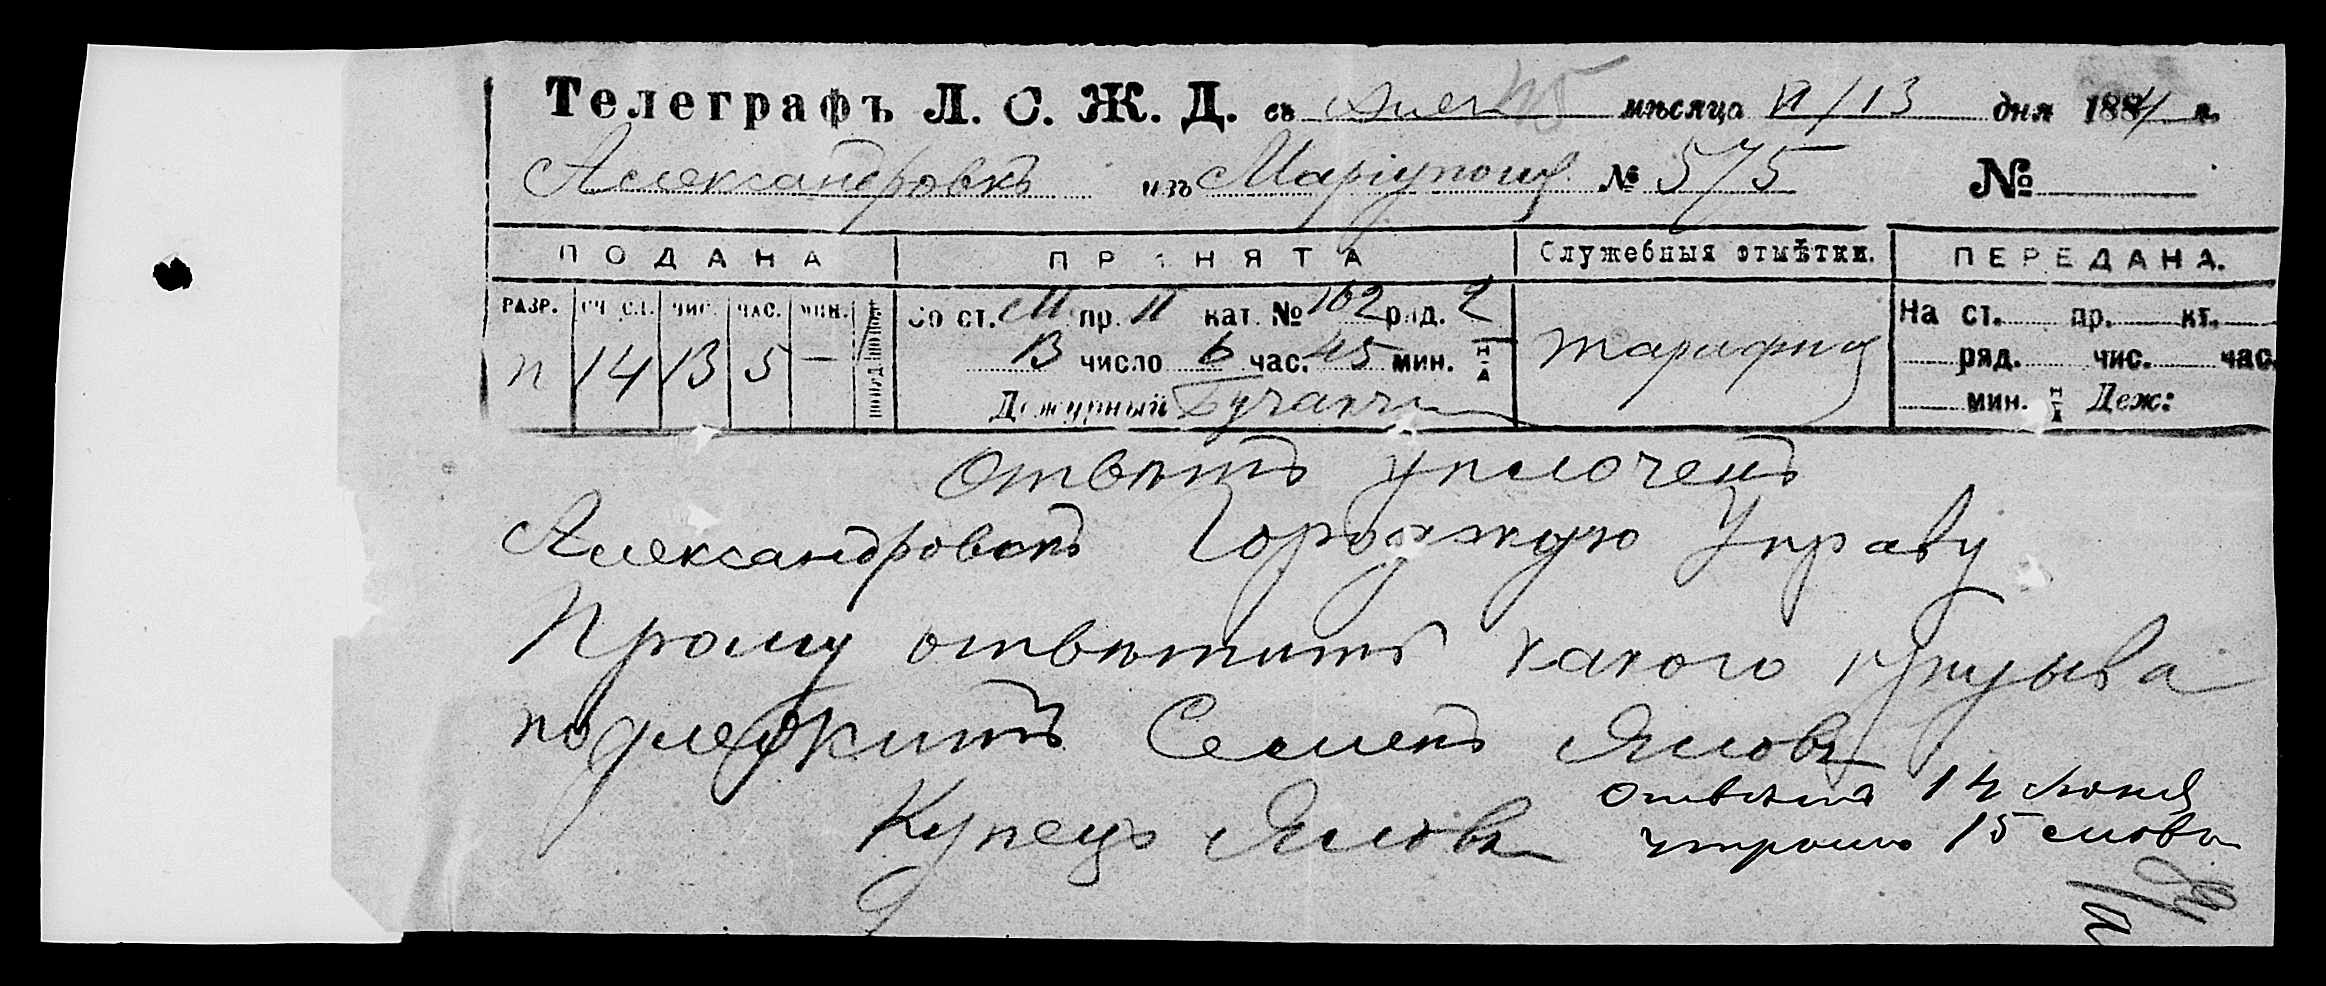 Телеграфъ Л. С. Ж. Д. съ Алек мѣсяца VI/13 дня 1884 г.
Александровкѣ изъ Маріуполя № 575 №
ПОДАНА ПРИНЯТА Служебныя отмѣтки. ПЕРЕДАНА.
РАЗР. СЧ. СЛ. ЧИС. ЧАС. МИН. ПОПОЛ.ПОЛУН. Со ст. М. пр. II кат. № 102 ряд. 2 На ст. пр. кт.
п 14 13 5 — 13 число 6 час. 45 мин. тарифная ряд. чис. час.
Дежурный мин. Деж:
Отвѣтъ уплоченъ
Александровскъ Городскую Управу
Прошу отвѣтить какого призыва
подлежитъ Семенъ Яловъ
Купецъ Яловъ
Отвѣтить 14 Іюня
утромъ 15 словъ